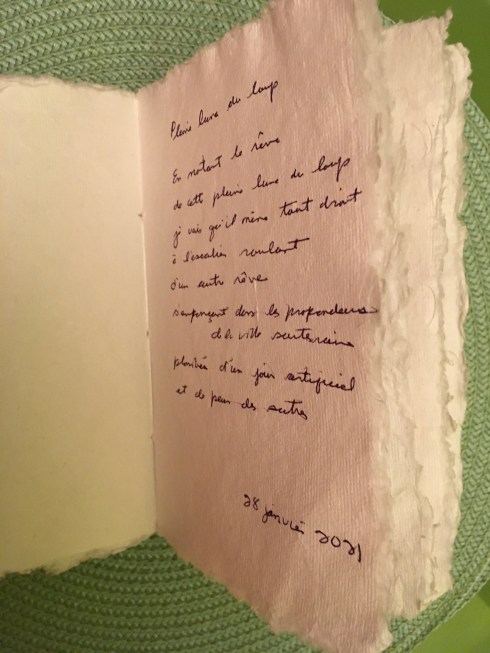 Pleine lune du loup
En notant le rêve
de cette pleine lune du loup
je vois qu'il mène tout droit
à l'escalier roulant
d'un autre rêve
s'enfonçant dans les profondeurs
de la ville souterraine
plombée d'un jour artificiel
et de peur des autres
28 janvier 2021